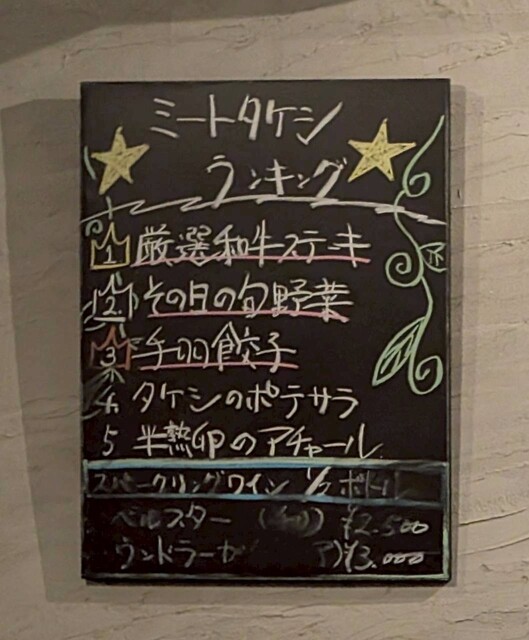 ミートタケシ
ランキング
1 厳選和牛ステーキ
2 その日の旬野菜
3 手羽餃子
4 タケシのポテサラ
5 半熟卵のアチャール
スパークリングワイン 1/2ボトル
ベルスター ¥2.500
ウンドラーガ ¥3.000